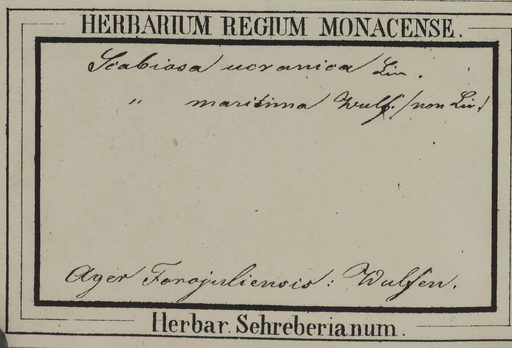 HERBARIUM REGIUM MONACENSE.
Scabiosa ucranica Lin.
" maritima Wulf. (non Lin.)
Ager Forojuliensis: Wulfen.
Herbar. Schreberianum.